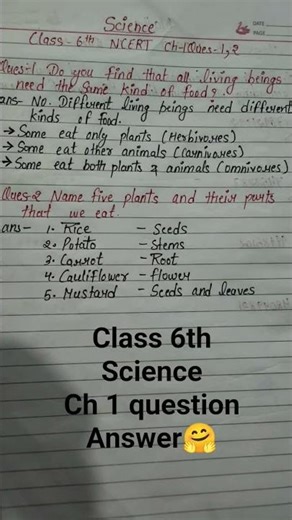 Science
DATE
PAGE
Class - 6th NCERT Ch-1 Ques-1,2
Ques-1 Do you find that all living beings
need the same kind of food?
ans- No. Different living beings need different
kinds of food.
→ Some eat only plants (Herbivores)
→ Some eat other animals (Carnivores)
→ Some eat both plants & animals (omnivores)
Ques-2 Name five plants and their parts
that we eat.
ans- 1. Rice - Seeds
2. Potato - Stems
3. Carrot - Root
4. Cauliflower - flower
5. Mustard - Seeds and leaves
Class 6th
Science
Ch 1 question
Answer🤗